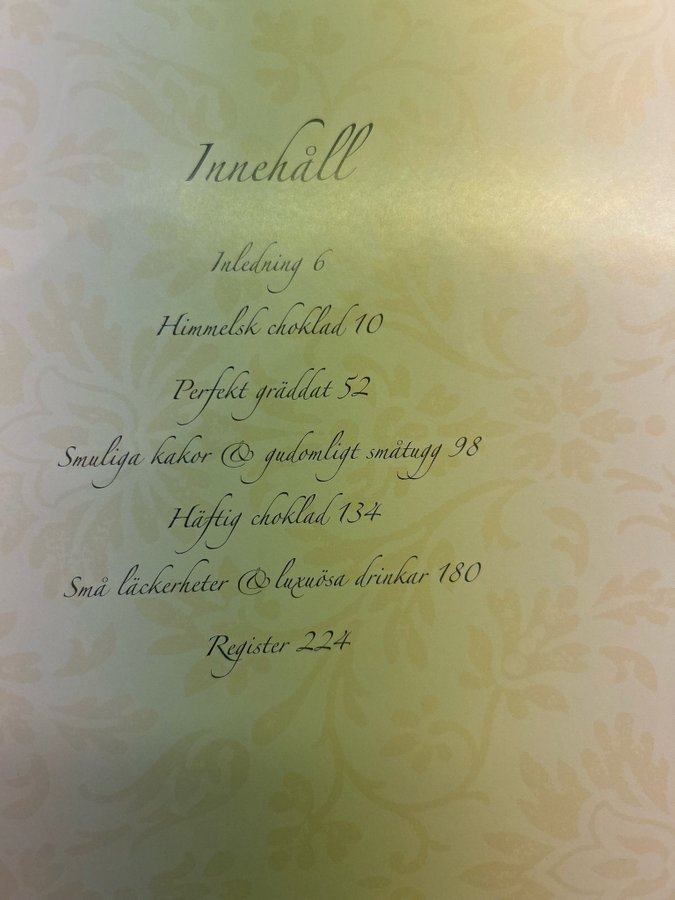 Innehåll
Inledning 6
Himmelsk choklad 10
Perfekt gräddat 52
Smuliga kakor & gudomligt småtugg 98
Häftig choklad 134
Små läckerheter & luxuösa drinkar 180
Register 224